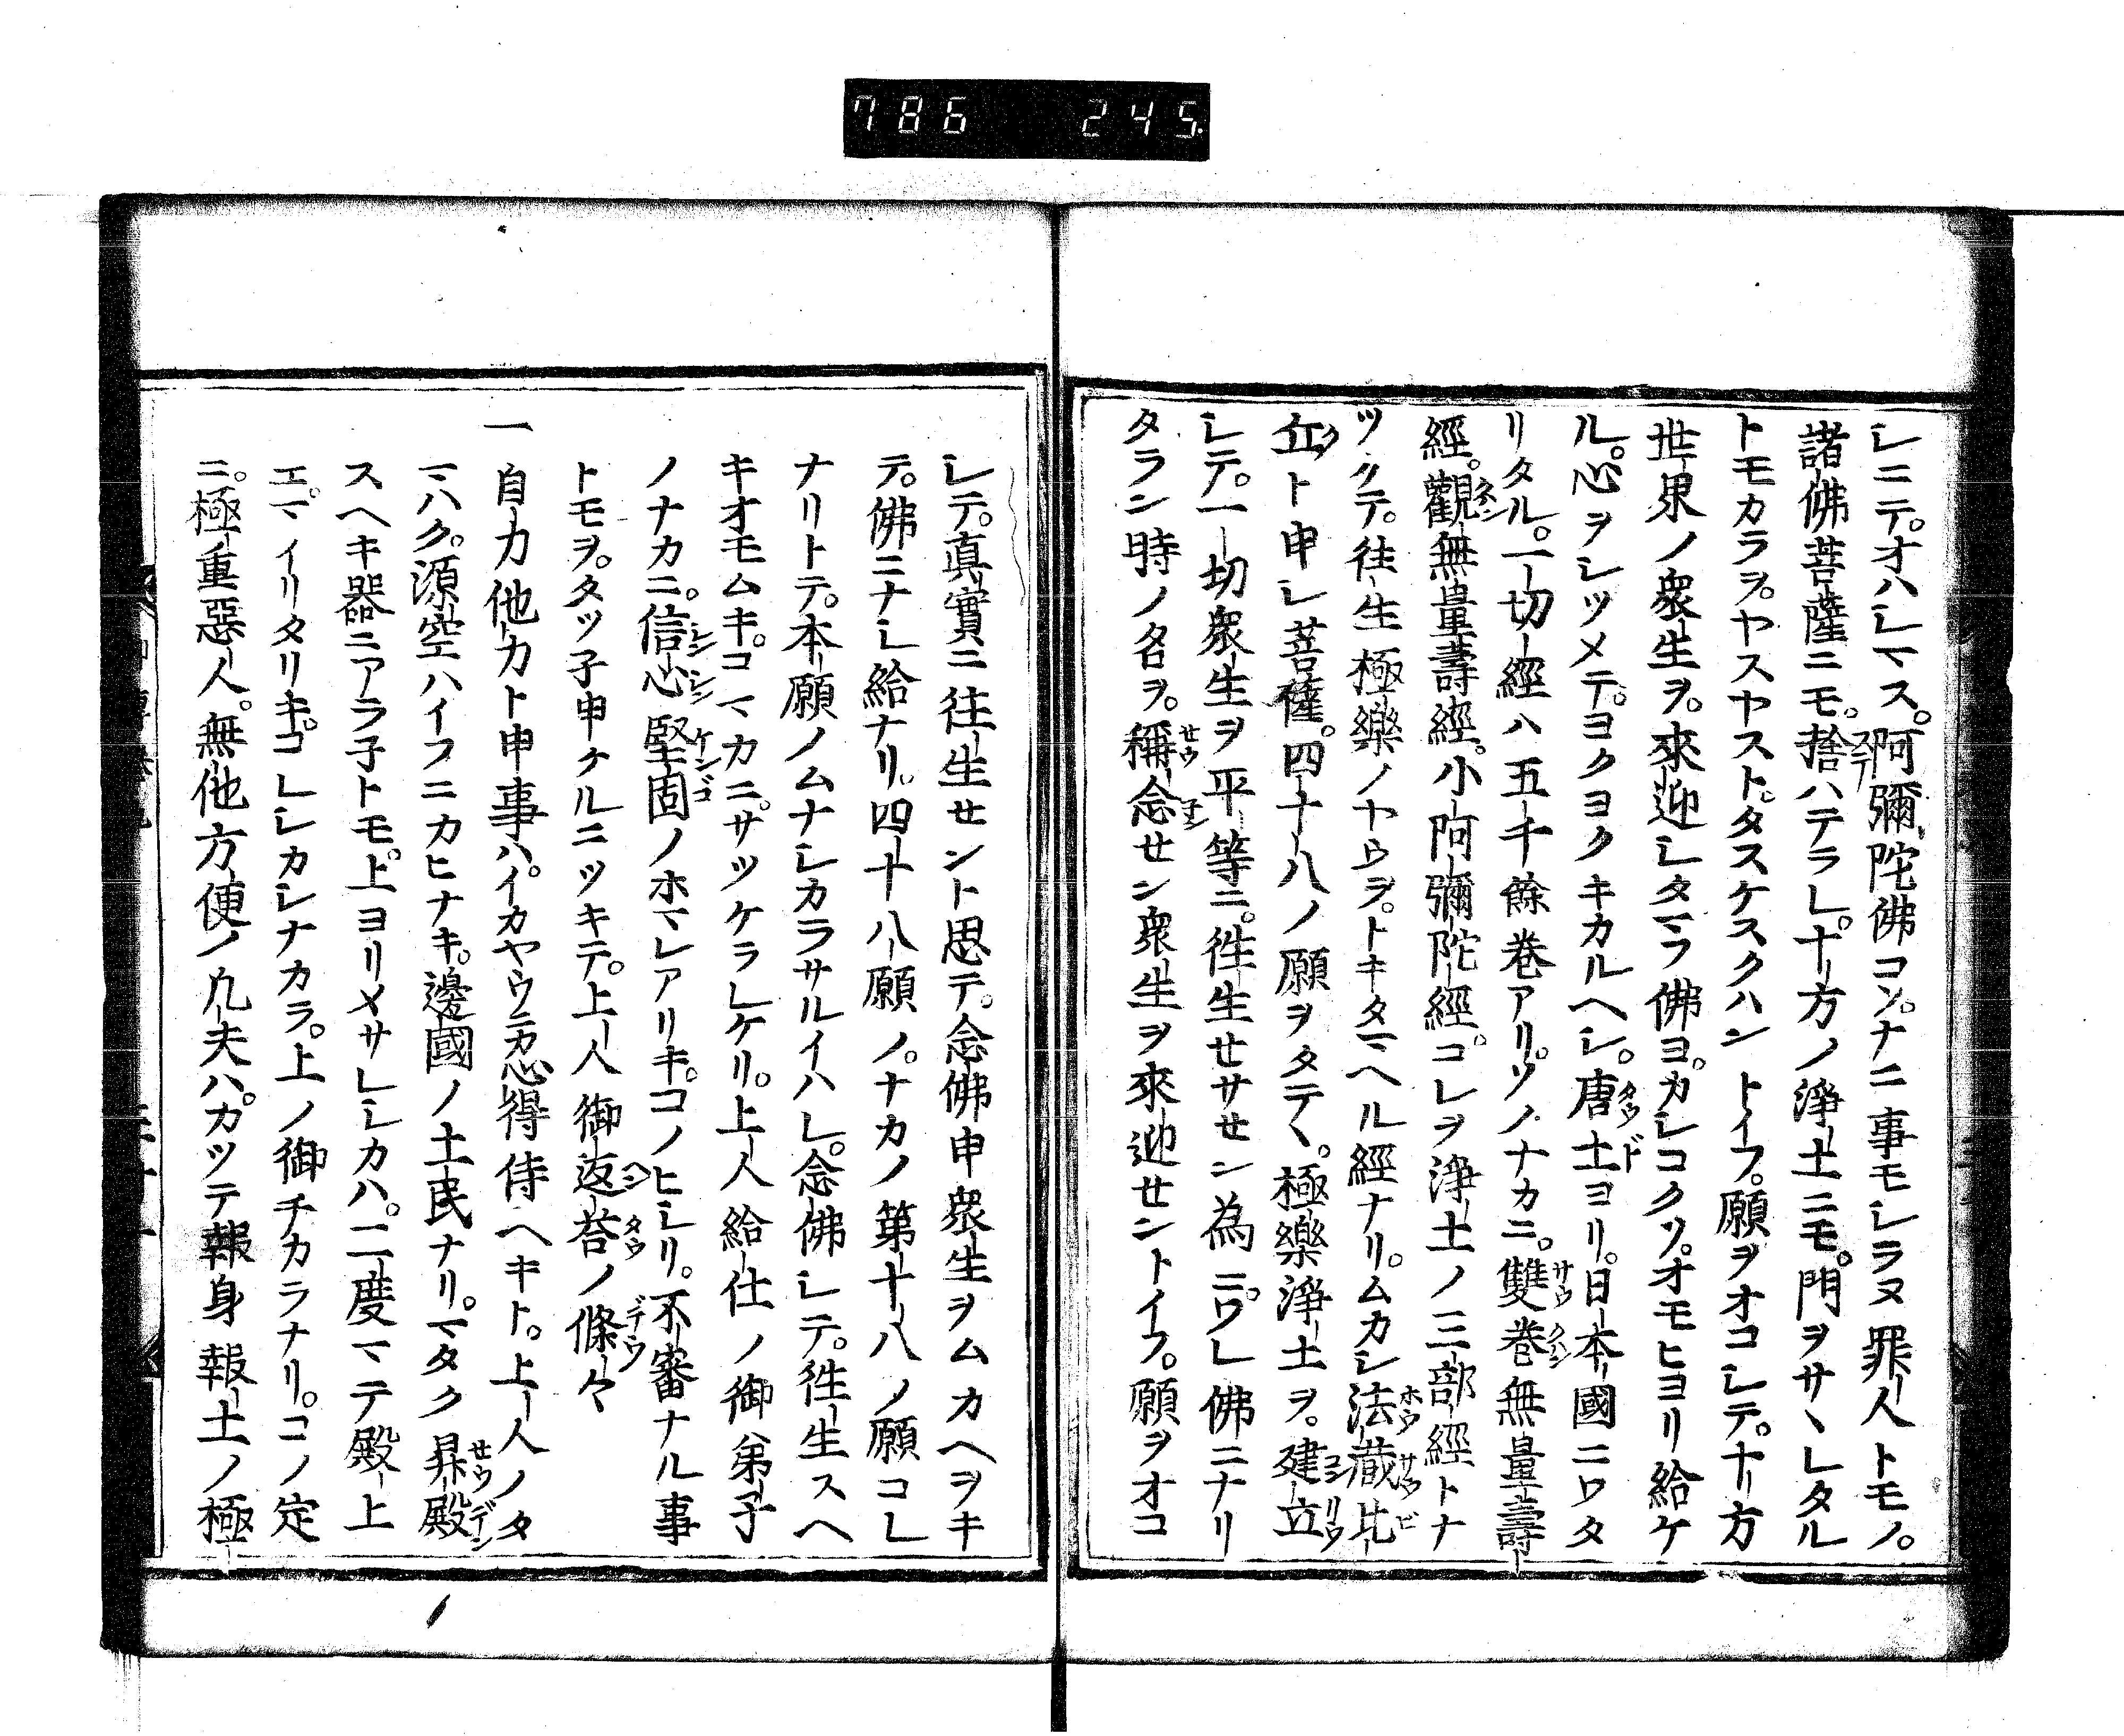 786 245.
シニテ。オハシマス。阿彌陀佛コソ。ナニ事モシラヌ罪人トモノ。
諸佛菩薩ニモ。捨ハテラレ。十方ノ淨土ニモ。門ヲサヽレタル
トモカラヲ。ヤスヤスト。タスケスクハントイフ。願ヲオコシテ。十方
世界ノ衆生ヲ。來迎シタマフ佛ヨ。カシコクソ。オモヒヨリ給ケ
ル。心ヲシツメテ。ヨクヨクキカルヘシ。唐土ヨリ。日本國ニワタ
リタル。一切經ハ五千餘巻アリ。ソノナカニ。雙巻無量壽
經。觀無量壽經。小阿彌陀經。コレヲ淨土ノ三部經トナ
ツクテ。往生極樂ノヤウヲ。トキタマヘル經ナリ。ムカシ法藏比
丘ト申シ菩薩。四十八ノ願ヲタテヽ。極樂淨土ヲ。建立
シテ。一切衆生ヲ平等ニ。往生セサセン為ニ。ワレ佛ニナリ
タラン時ノ名ヲ。稱念セン衆生ヲ來迎セントイフ。願ヲオコ
シテ。真實ニ往生セント思テ。念佛申衆生ヲムカヘヲキ
テ。佛ニナシ給ナリ。四十八願ノ。ナカノ第十八ノ願コレ
ナリトテ。本願ノムナシカラサルイハレ。念佛シテ。往生スヘ
キオモムキ。コマカニ。サツケラレケリ。上人給仕ノ御弟子
ノナカニ。信心堅固ノホマレアリキ。コノヒシリ。不審ナル事
トモヲ。タツ子申ケルニツキテ。上人御返荅ノ條々
一自力他力ト申事ハ。イカヤウニカ心得侍ヘキト。上人ノタ
マハク。源空ハイフニカヒナキ。邊國ノ土民ナリ。マタク昇殿
スヘキ器ニアラ子トモ。上ヨリメサレシカハ。二度マテ殿上
エ。マイリタリキ。コレシカシナカラ。上ノ御チカラナリ。コノ定
ニ。極重惡人。無他方便ノ凡夫ハ。カツテ報身報土ノ極